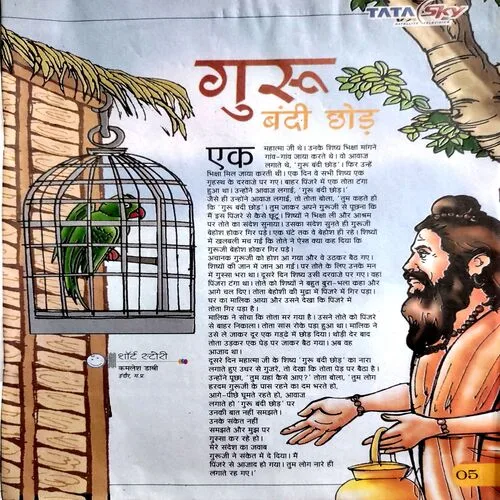 TATA Sky
गुरू
बंदी छोड़
एक महात्मा जी थे। उनके शिष्य भिक्षा मांगने
गांव-गांव जाया करते थे। वो आवाज
लगाते थे, 'गुरू बंदी छोड़'। फिर उन्हें
भिक्षा मिल जाया करती थी। एक दिन वे सभी शिष्य एक
गृहस्थ के दरवाजे पर गए। बाहर पिंजरे में एक तोता टंगा
हुआ था। उन्होंने आवाज लगाई, 'गुरू बंदी छोड़'।
जैसे ही उन्होंने आवाज लगाई, तो तोता बोला, 'तुम कहते हो
कि 'गुरू बंदी छोड़'। तुम जाकर अपने गुरूजी से पूछना कि
मैं इस पिंजरे से कैसे छूटूं। शिष्यों ने भिक्षा ली और आश्रम
पर तोते का संदेश सुनाया। उसका संदेश सुनते ही गुरूजी
बेहोश होकर गिर पड़े। एक घंटे तक वे बेहोश ही रहे। शिष्यों
में खलबली मच गई कि तोते ने ऐसा क्या कह दिया कि
गुरूजी बेहोश होकर गिर पड़े।
अचानक गुरूजी को होश आ गया और वे उठकर बैठ गए।
शिष्यों की जान में जान आ गई। पर तोते के लिए उनके मन
में गुस्सा भरा था। दूसरे दिन शिष्य उसी दरवाजे पर गए। वहां
पिंजरा टंगा था। तोते को शिष्यों ने बहुत बुरा-भला कहा और
आगे चल दिए। तोता बेहोशी की मुद्रा में पिंजरे में गिर पड़ा।
घर का मालिक आया और उसने देखा कि पिंजरे में
तोता गिर पड़ा है।
मालिक ने सोचा कि तोता मर गया है। उसने तोते को पिंजरे
से बाहर निकाला। तोता सांस रोके पड़ा हुआ था। मालिक ने
उसे ले जाकर दूर एक गड्ढे में छोड़ दिया। थोड़ी देर बाद
तोता उड़कर एक पेड़ पर जाकर बैठ गया। अब वह
आजाद था।
दूसरे दिन महात्मा जी के शिष्य 'गुरू बंदी छोड़' का नारा
लगाते हुए उधर से गुजरे, तो देखा कि तोता पेड़ पर बैठा है।
उन्होंने पूछा, 'तुम यहां कैसे आए?' तोता बोला, 'तुम लोग
हरदम गुरूजी के पास रहने का दम भरते हो,
आगे-पीछे घूमते रहते हो, आवाज
लगाते हो 'गुरू बंदी छोड़' पर
उनकी बात नहीं समझते।
उनके संकेत नहीं
समझते और मुझ पर
गुस्सा कर रहे हो।
मेरे संदेश का जवाब
गुरूजी ने संकेत में दे दिया। मैं
पिंजरे से आजाद हो गया। तुम लोग नारे ही
लगाते रह गए।'
शॉर्ट स्टोरी
कमलेश डाभी
इंदौर, म.प्र.
05